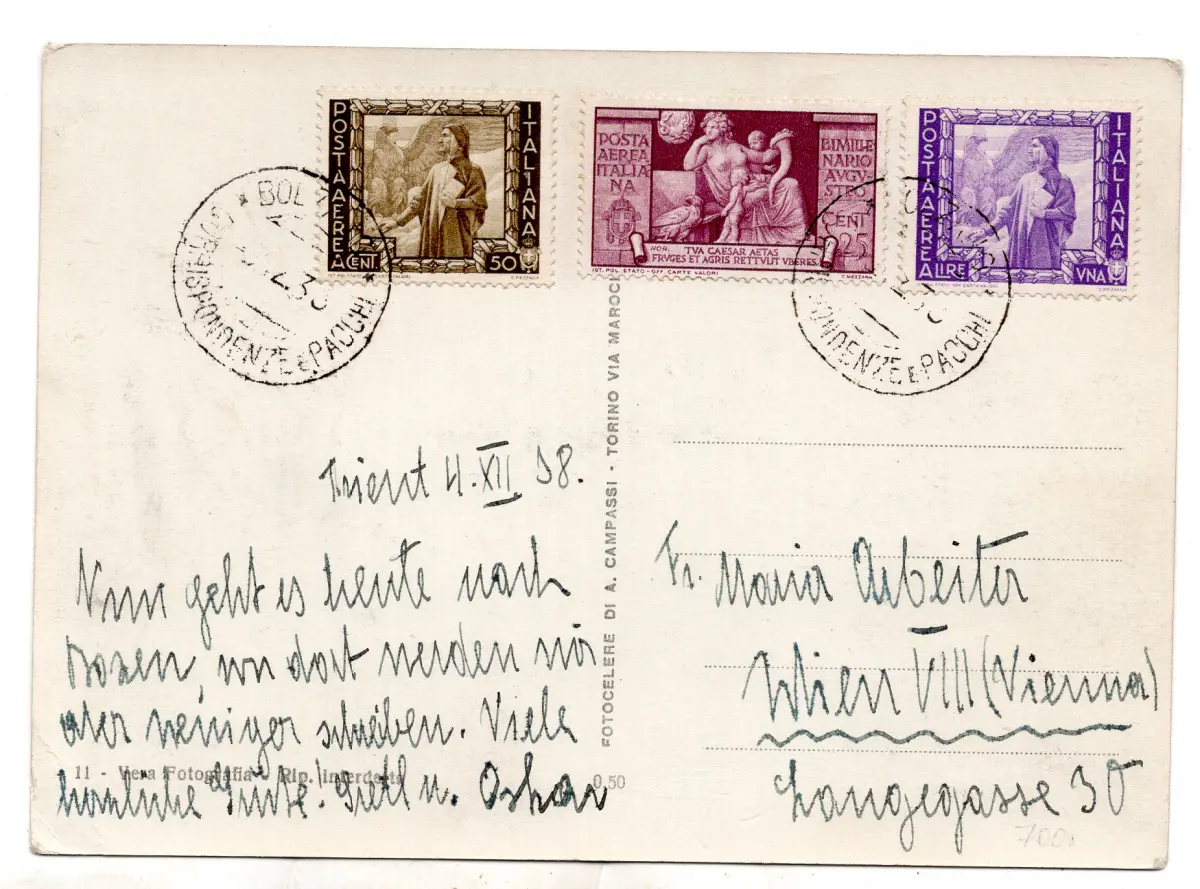 POSTA AEREA ITALIANA
CENT 50
IST. POL. STATO-OFF. CARTE VALORI C. MEZZANA
POSTA
AEREA
ITALIA
NA
BIMILLE
NARIO
AVGV
STEO
CENT
25
HOR. TVA CAESAR AETAS
FRVGES ET AGRIS RETTVLIT VBERES
IST. POL. STATO - OFF. CARTE VALORI C. MEZZANA
POSTA AEREA ITALIANA
LIRE VNA
C. MEZZANA
BOL
CORRISPONDENZE E PACCHI
RISPONDENZE E PACCHI
FOTOCELERE DI A. CAMPASSI - TORINO VIA MAROC
Trient 4. XII 38.
Nun geht es heute nach
Bozen, von dort werden wir
aber weniger schreiben. Viele
11 - Vera Fotografia - Rip. Interdetta 0,50
herzliche Grüße! Gretl u. Oskar
Fr. Maria Arbeiter
Wien VIII (Vienna)
Langegasse 30
700